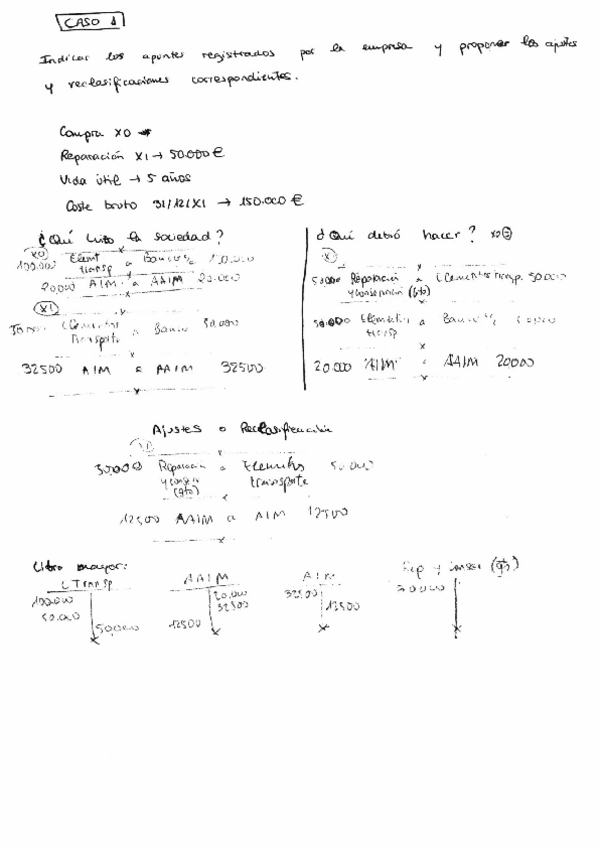 CASO 1
Indicar los apuntes registrados por la empresa y proponer los ajustes
y reclasificaciones correspondientes.
Compra X0
Reparación X1 → 50.000 €
Vida útil → 5 años
Coste bruto 31/12/X1 → 150.000 €
¿Qué hizo la sociedad?
X0
100.000 Elemt transp a Bancos
20.000 AIM a AAIM 20.000
X1
Elementos Transporte a Banco 50.000
32500 AIM a AAIM 32500
¿Qué debió hacer? X0
50.000 Reparación y conservación (gto) a Elementos Transp. 50.000
50.000 Elementos transp a Bancos
20.000 AIM a AAIM 20000
Ajustes o Reclasificación
Reparación y conserv (gto) a Elementos transporte 50.000
12500 AAIM a AIM 12500
Libro mayor:
Transp AAIM AIM Rep y conser
100.000 20.000 32500
50.000 32500 12500
50.000 12500